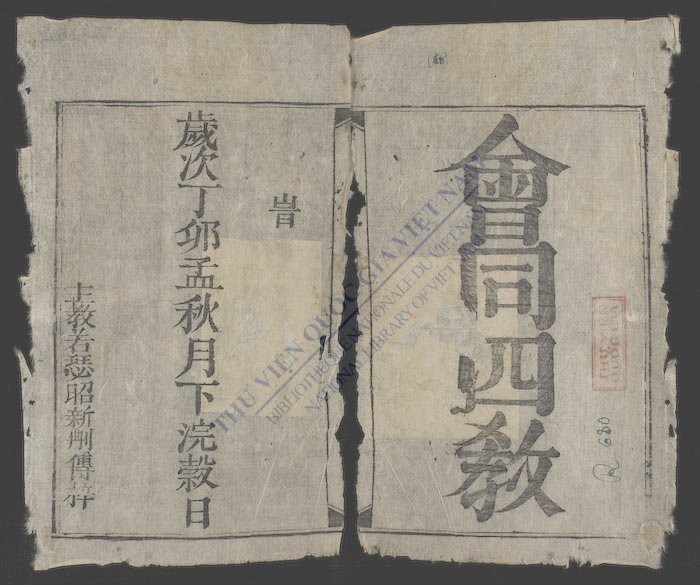 會同四教
旹
歲次丁卯孟秋月下浣穀日
主教若瑟昭新刑傳梓
THƯ VIỆN QUỐC GIA VIỆT NAM
BIBLIOTHÈQUE NATIONALE DU VIETNAM
NATIONAL LIBRARY OF VIETNAM
R 680